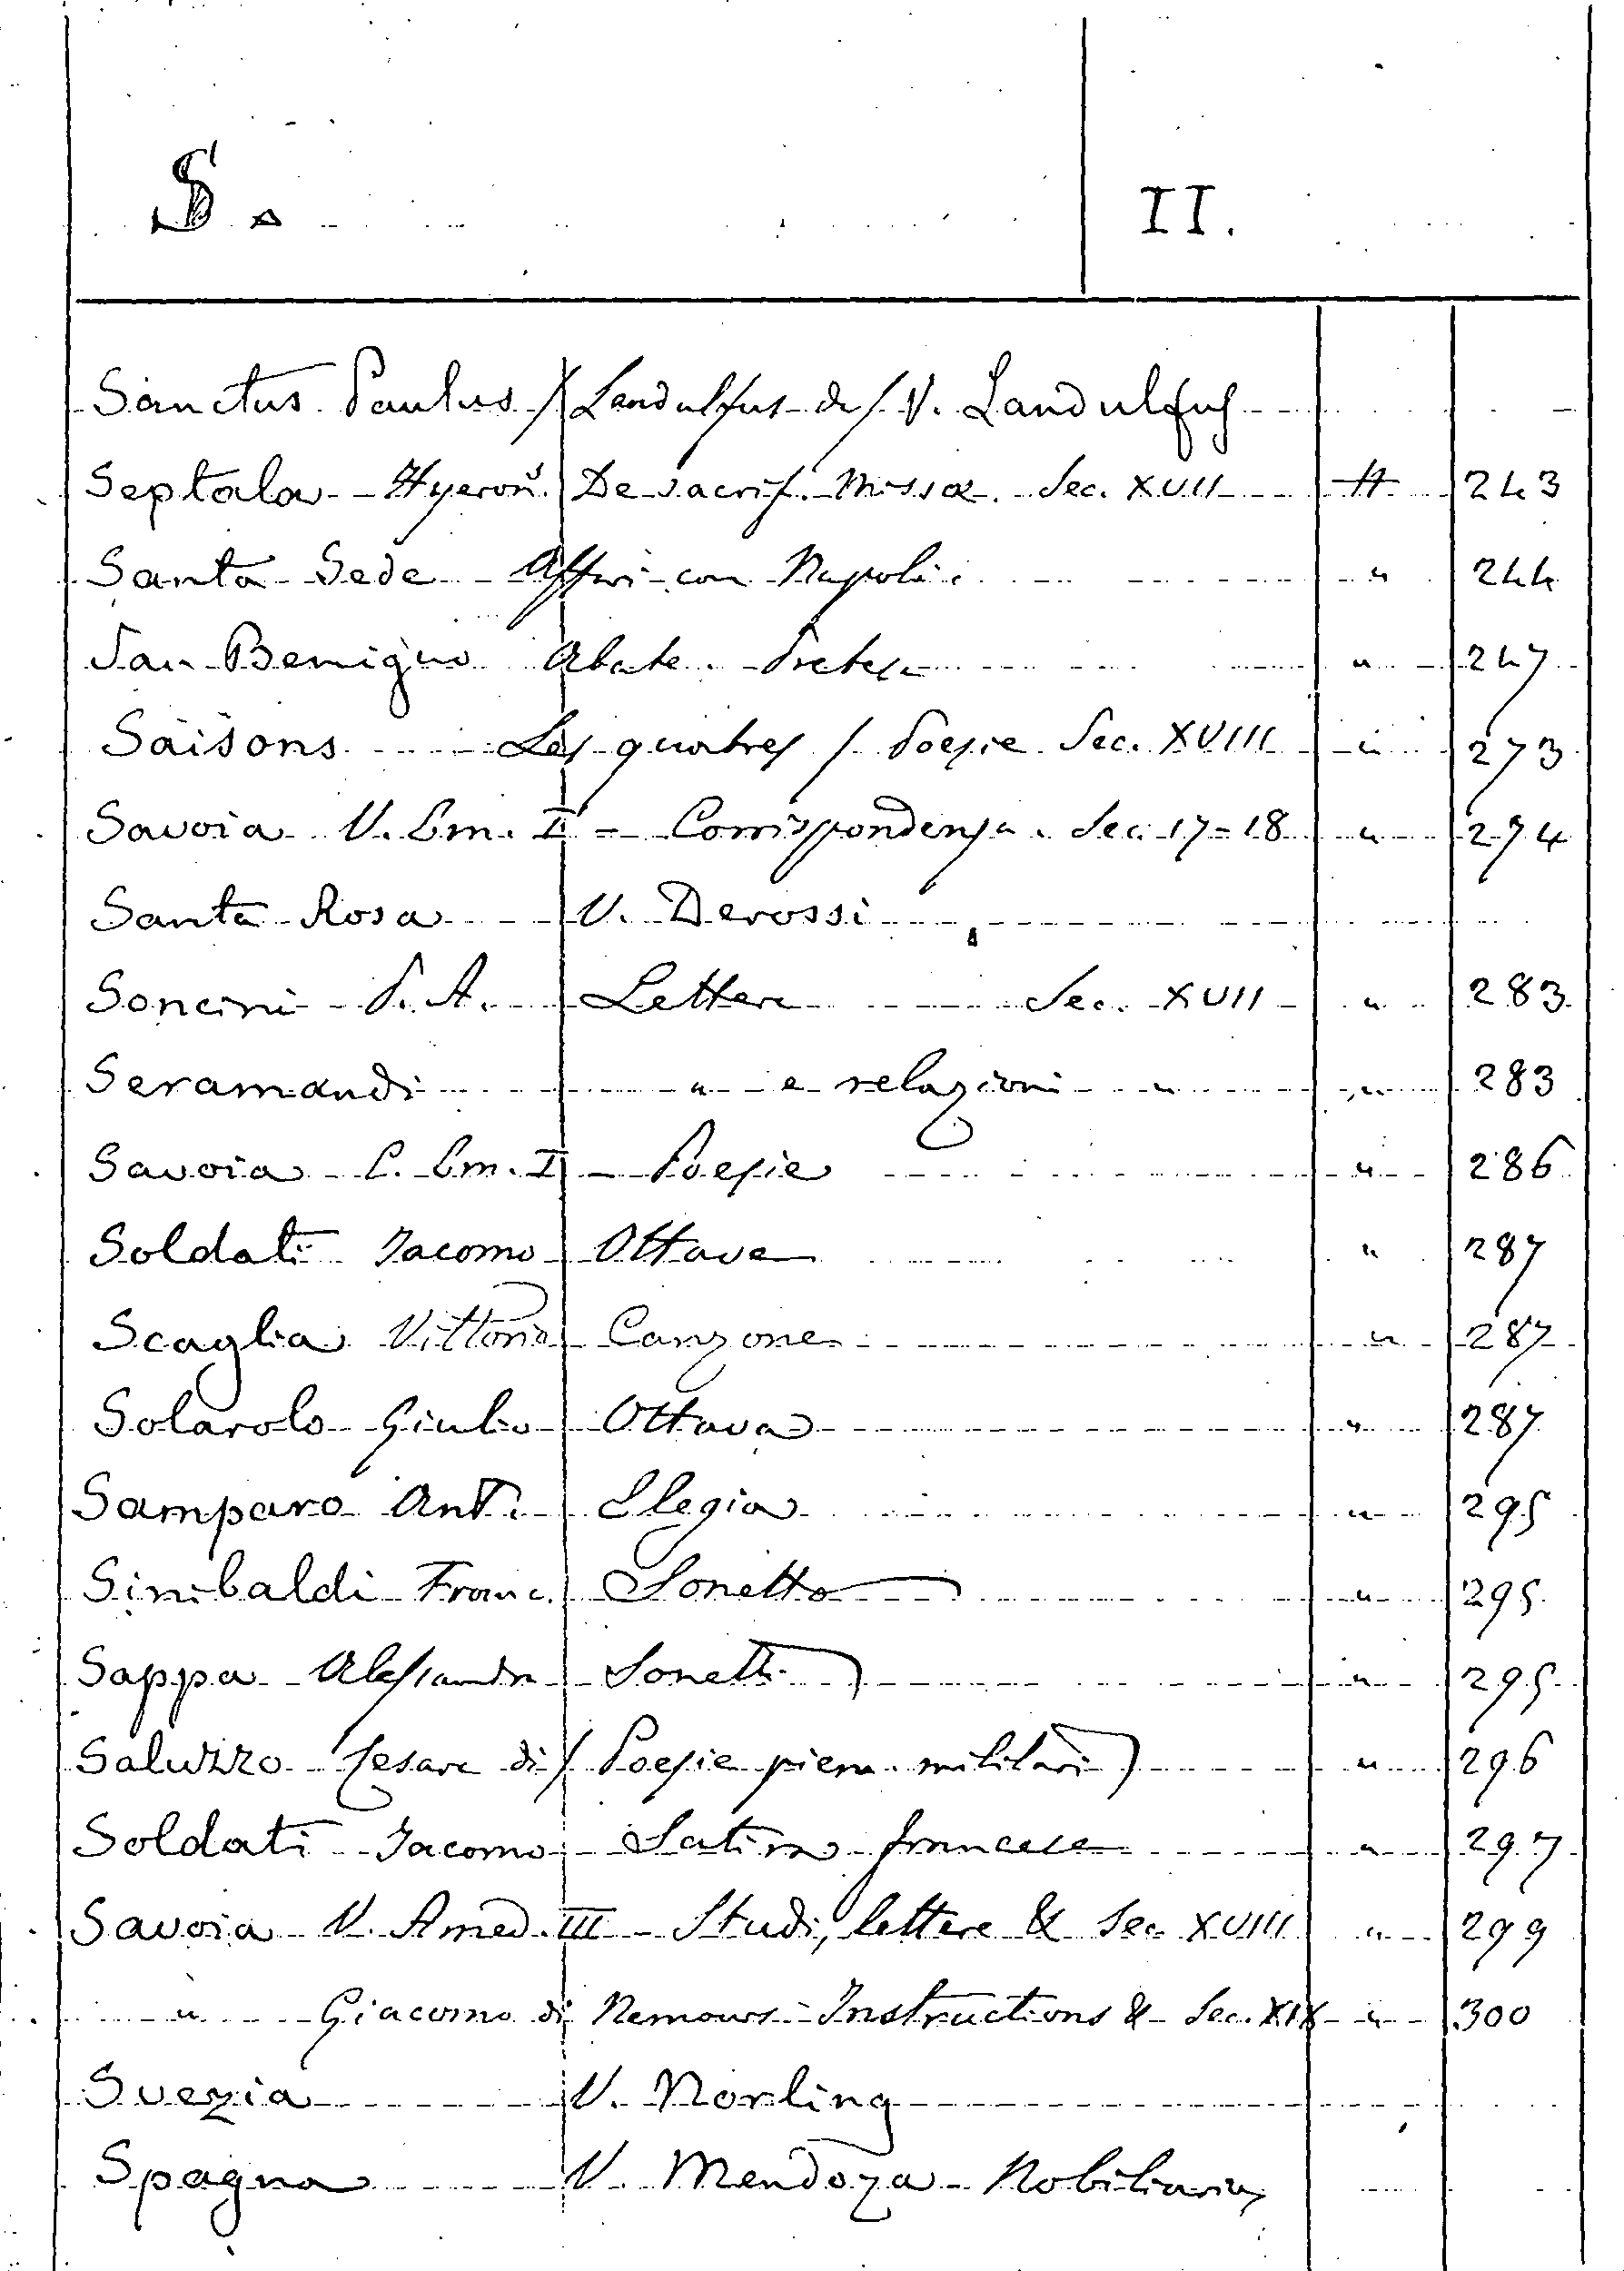 S. II.
Sanctus Paulus / Landulfus de / V. Landulfus
Septala Hyeron.s De sacrif. Missæ. Sec. XVII H 243
Santa Sede Affari con Napoli. " 244
San Benigno Abate. Pretese " 247
Saisons Les quatres / Poesie Sec. XVIII " 273
Savoia V. Em. I = Corrispondenza. Sec. 17-18 " 274
Santa Rosa V. Derossi
Soncini P. A. Lettere Sec. XVII " 283
Seramandi " e relazioni " " 283
Savoia C. Em. I - Poesie " 286
Soldati Jacomo Ottave " 287
Scaglia Vittorio Canzone " 287
Solarolo Giulio Ottava " 287
Samparo Ant. Elegia " 295
Sinibaldi Franc. Sonetto " 295
Sappa Alessandro Sonetti " 295
Saluzzo Cesare di / Poesie piem. militari) " 296
Soldati Jacomo Satira francese " 297
Savoia V. Amed. III - Studi, lettere & Sec. XVIII " 299
" Giacomo di Nemours - Instructions & Sec. XIX " 300
Svezia V. Norling
Spagna V. Mendoza - Nobiliario